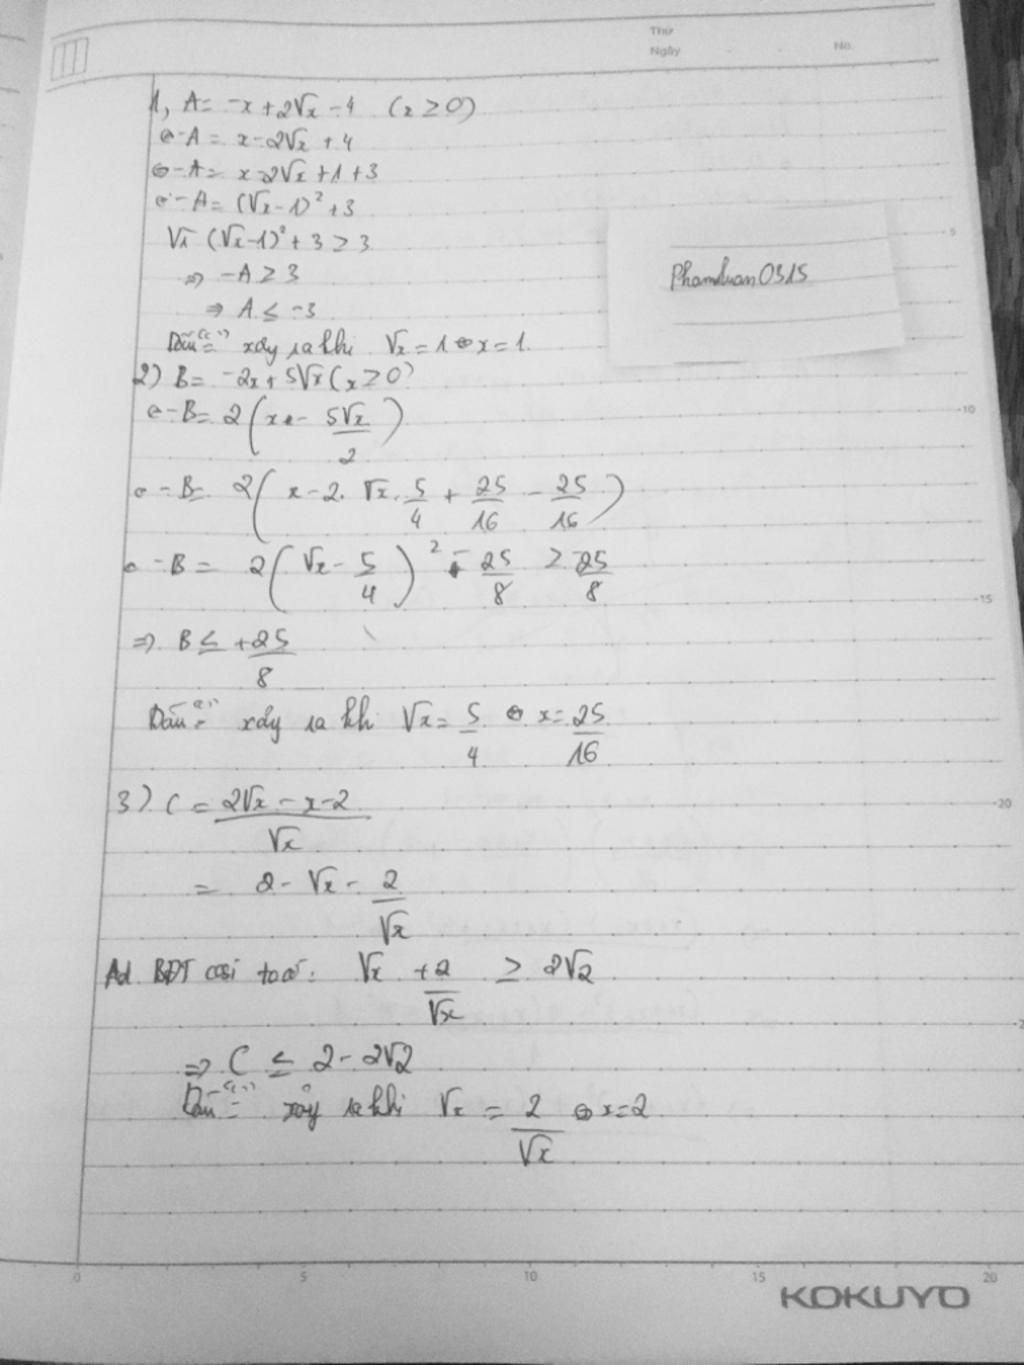 Thứ
Ngày
No.
1, A = -x + 2√x - 4 (x ≥ 0)
⇔ -A = x - 2√x + 4
⇔ -A = x - 2√x + 1 + 3
⇔ -A = (√x - 1)² + 3
Vì (√x - 1)² + 3 ≥ 3
⇒ -A ≥ 3
⇒ A ≤ -3
Dấu "=" xảy ra khi √x = 1 ⇔ x = 1.
Phamduan0315
2) B = -2x + 5√x (x ≥ 0)
⇔ -B = 2(x - 5√x/2)
⇔ -B = 2(x - 2.√x.5/4 + 25/16 - 25/16)
⇔ -B = 2(√x - 5/4)² - 25/8 ≥ -25/8
⇒ B ≤ +25/8
Dấu "=" xảy ra khi √x = 5/4 ⇔ x = 25/16
3) C = 2√x - x - 2/√x
= 2 - √x - 2/√x
Ad BĐT cosi ta có: √x + 2/√x ≥ 2√2
⇒ C ≤ 2 - 2√2
Dấu "=" xảy ra khi √x = 2/√x ⇔ x = 2
5
10
15
20
0 5 10 15 20
KOKUYO